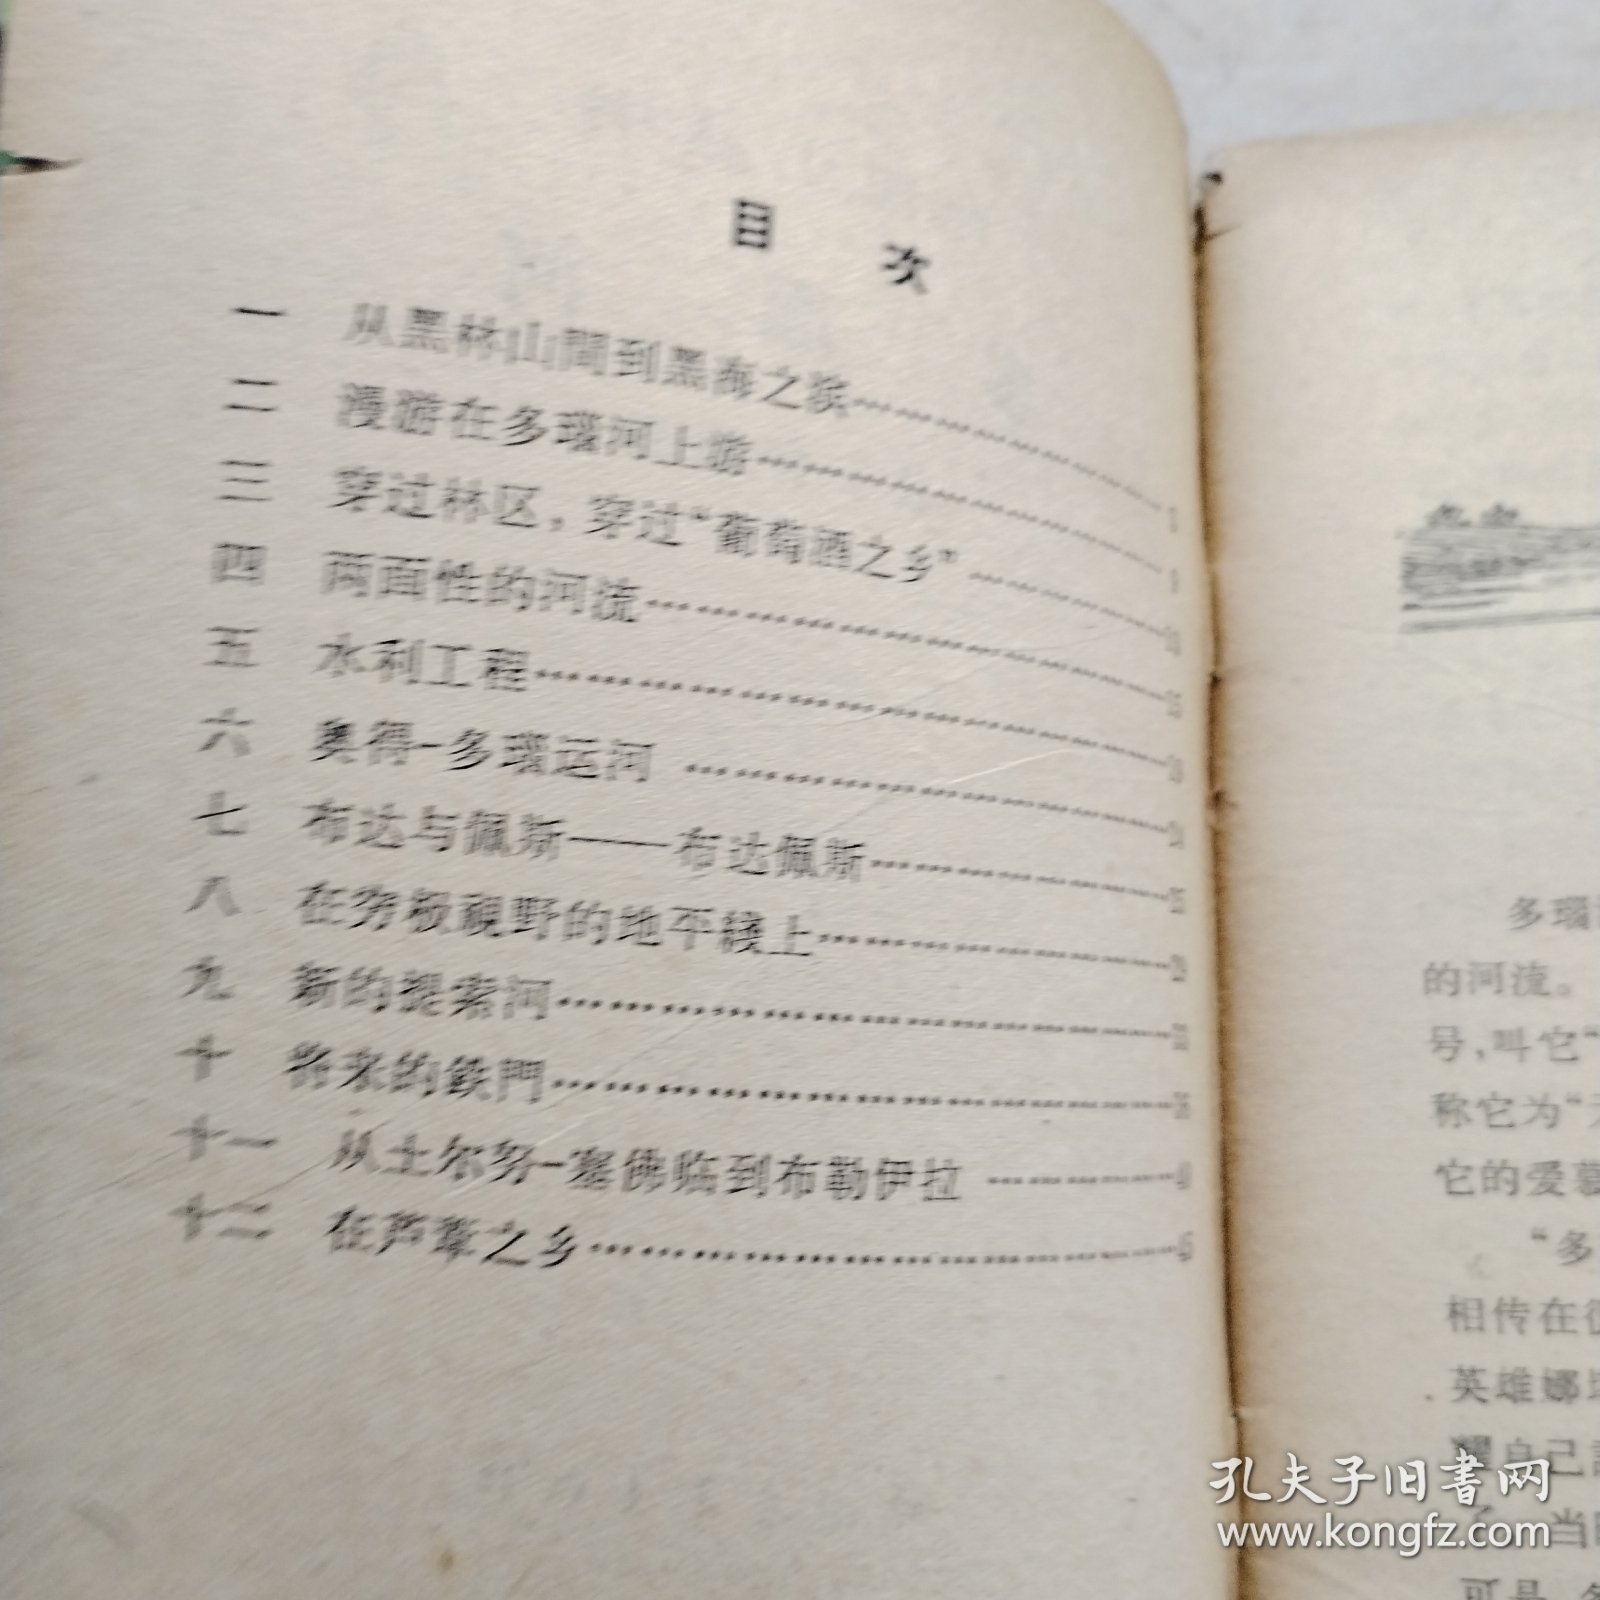 目 次
一 从黑林山間到黑海之滨
二 漫游在多瑙河上游
三 穿过林区，穿过“葡萄酒之乡”
四 两面性的河流
五 水利工程
六 奥得-多瑙运河
七 布达与佩斯——布达佩斯
八 在穷极視野的地平綫上
九 新的提索河
十 将来的鉄門
十一 从土尔努-塞佛临到布勒伊拉
十二 在芦葦之乡
多瑙
的河流。
号，叫它“
称它为“
它的爱慕
“多
相传在
英雄娜
耀自己
了 当
可是
孔夫子旧書网
www.kongfz.com